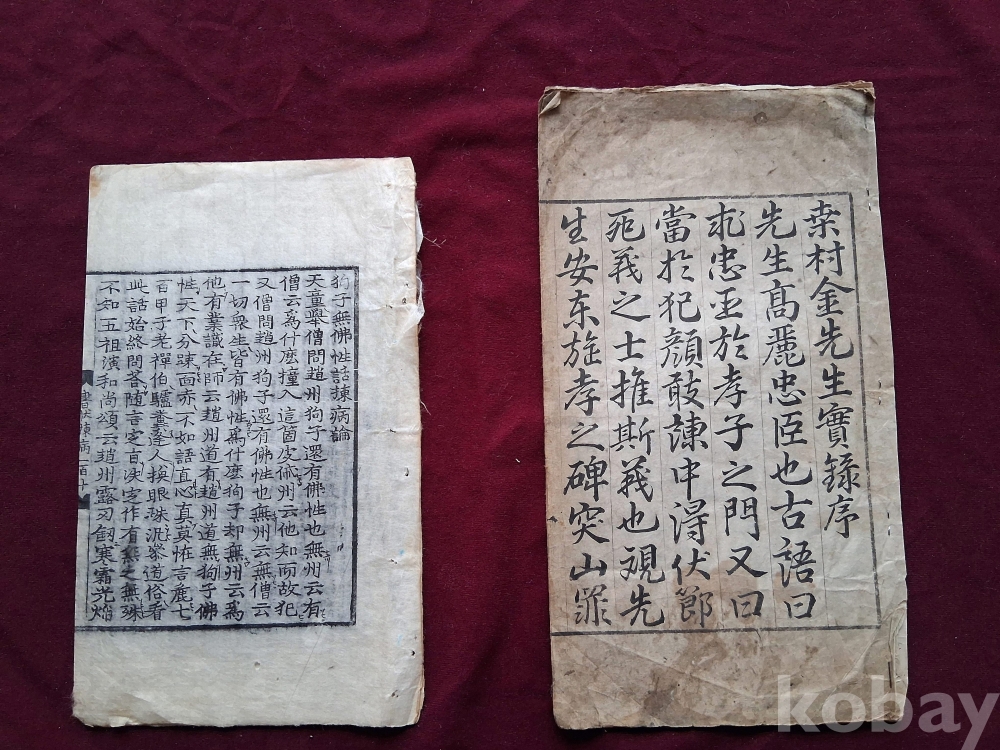 狗子無佛性話揀病論
天童舉僧問趙州狗子還有佛性也無州云有
僧云爲什麽撞入這箇皮俗州云他知而故犯
又僧問趙州狗子還有佛性也無州云無僧云
一切衆生皆有佛性爲什麽狗子却無州云爲
他有業識在師云趙州道有趙州道無狗子佛
性天下分踈面赤不如語直心真莫怪言麁七
百甲子老禪伯驢糞逢人換眼珠汎叅道俗看
此話始終問荅随言定旨决定作有無之無殊
不知五祖演和尚頌云趙州露刃劒寒霜光焰
桒村金先生實録序
先生髙麗忠臣也古語曰
求忠臣於孝子之門又曰
當於犯顔敢諫中得伏節
死義之士推斯義也視先
生安东旌孝之碑突山
kobay